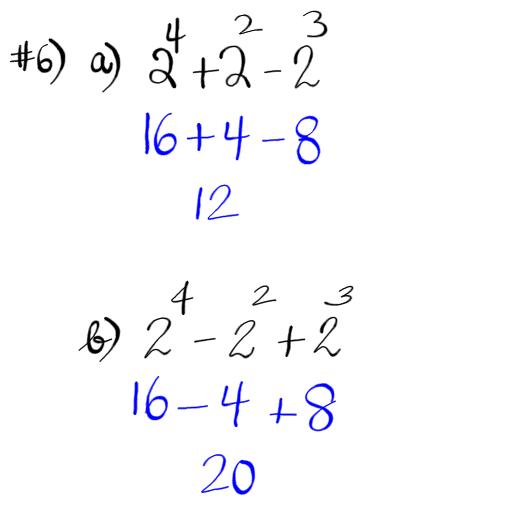 #6) a) 2⁴ + 2² - 2³
16 + 4 - 8
12
b) 2⁴ - 2² + 2³
16 - 4 + 8
20